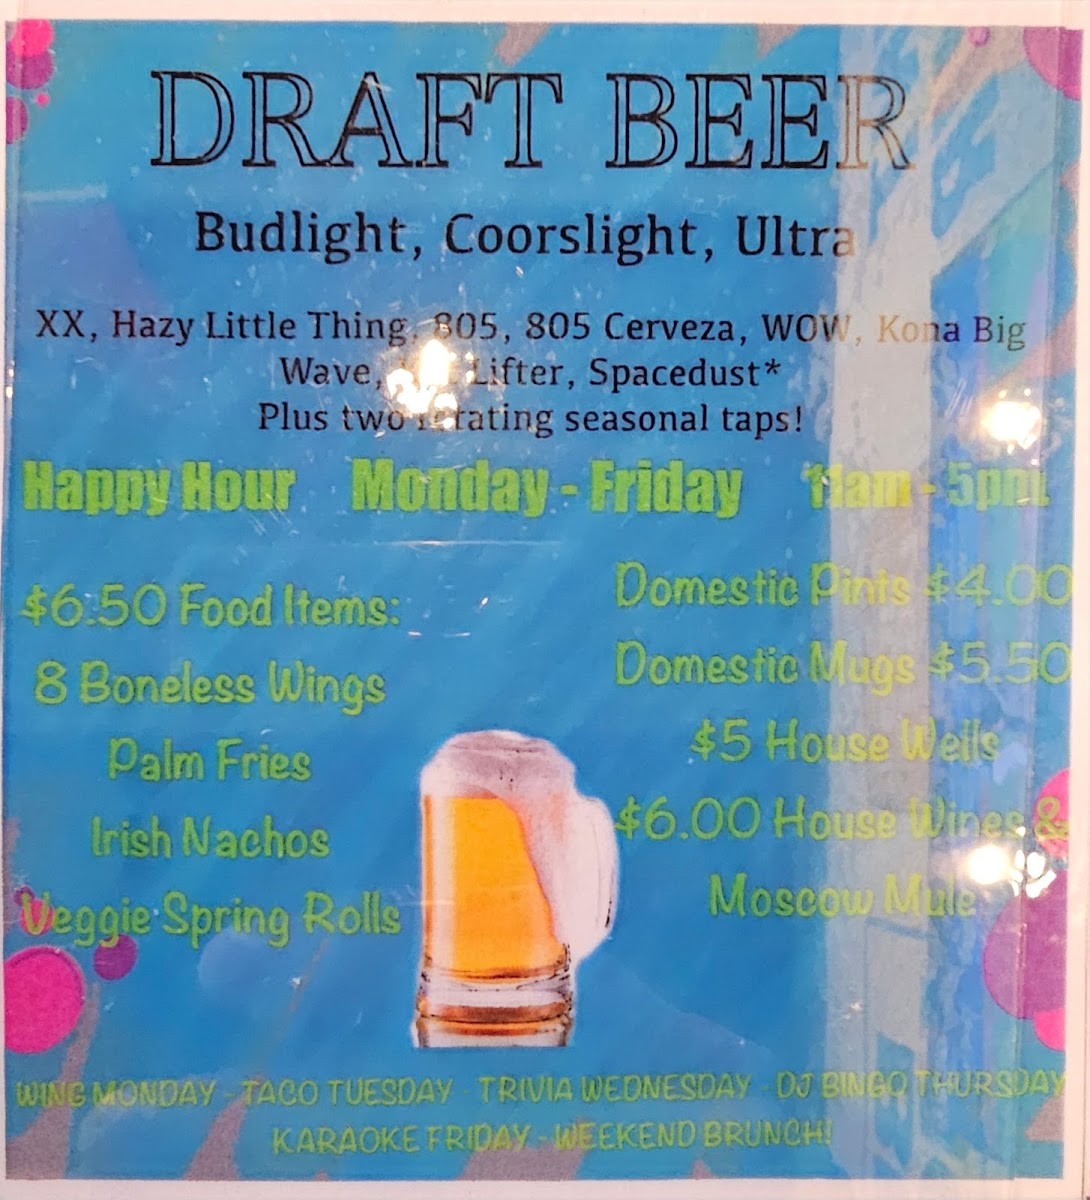 DRAFT BEER
Budlight, Coorslight, Ultra
XX, Hazy Little Thing, 805, 805 Cerveza, WOW, Kona Big
Wave, Lifter, Spacedust*
Plus two rotating seasonal taps!
Happy Hour Monday - Friday 11am - 5pm
$6.50 Food Items:
8 Boneless Wings
Palm Fries
Irish Nachos
Veggie Spring Rolls
Domestic Pints $4.00
Domestic Mugs $5.50
$5 House Wells
$6.00 House Wines &
Moscow Mule
WING MONDAY - TACO TUESDAY - TRIVIA WEDNESDAY - DJ BINGO THURSDAY
KARAOKE FRIDAY - WEEKEND BRUNCH!